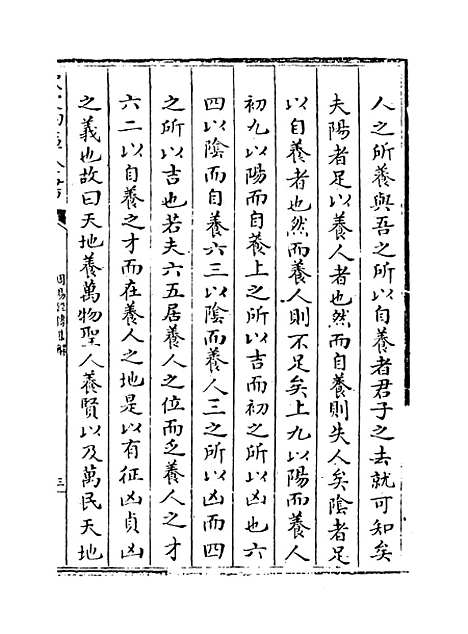 人之所養與吾之所以自養者君子之去就可知矣
夫陽者足以養人者也然而自養則失人矣陰者足
以自養者也然而養人則不足矣上九以陽而養人
初九以陽而自養上之所以吉而初之所以凶也六
四以陰而自養六三以陰而養人三之所以凶而四
之所以吉也若夫六五居養人之位而乏養人之才
六二以自養之才而在養人之地是以有征凶貞凶
之義也故曰天地養萬物聖人養賢以及萬民天地